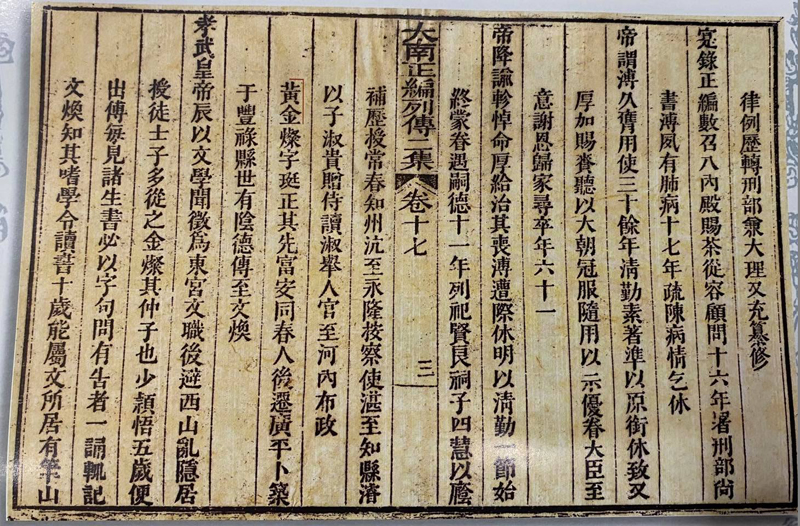 律例歷轉刑部兼大理又充纂修
寔錄正編數召入內殿賜茶從容顧問十六年署刑部尚
書溥夙有肺病十七年疏陳病情乞休
帝謂溥久膺用使三十餘年清勤素著準以原銜休致又
厚加賜賚聽以大朝冠服隨用以示優眷大臣至
意謝恩歸家尋卒年六十一
帝降諭軫悼命厚給治其喪溥遭際休明以清勤一節始
終蒙眷遇嗣德十一年列祀賢良祠子四慧以廕
大南正編列傳二集 卷十七 三
補歷授常春知州沆至永隆按察使湛至知縣濬
以子淑貴贈侍讀淑舉人官至河內布政
黃金燦字珽正其先富安同春人後遷廣平卜築
于豐祿縣世有陰德傳至文煥
孝武皇帝辰以文學聞徵爲東宮文職後避西山亂隱居
授徒士子多從之金燦其仲子也少穎悟五歲便
出傳每見諸生書必以字句問有告者一誦輒記
文煥知其嗜學令讀書十歲能屬文所居有筆山